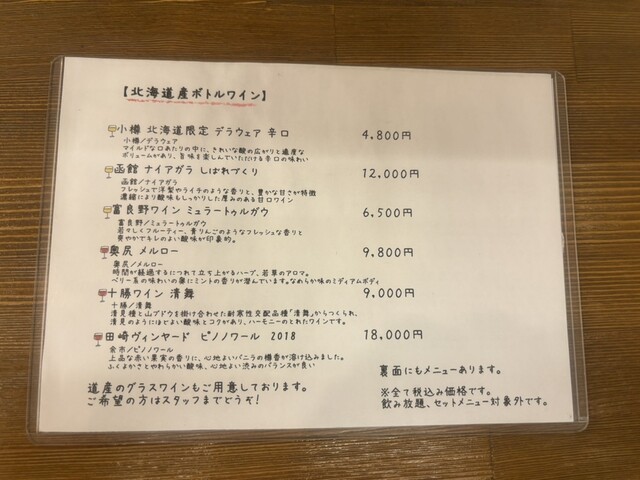 【北海道産ボトルワイン】
小樽 北海道限定 デラウェア 辛口 4.800円
小樽/デラウェア
マイルドな口あたりの中に、きれいな酸の広がりと適度な
ボリュームがあり、旨味を楽しんでいただける辛口の味わい
函館 ナイアガラ しばれづくり 12,000円
函館/ナイアガラ
フレッシュで洋梨やライチのような香りと、豊かな甘さが特徴
濃縮により酸味もしっかりした厚みのある甘口ワイン
富良野ワイン ミュラートゥルガウ 6,500円
富良野/ミュラートゥルガウ
若々しくフルーティー、青りんごのようなフレッシュな香りと
爽やかでキレのよい酸味が印象的。
奥尻 メルロー 9,800円
奥尻/メルロー
時間が経過するにつれて立ち上がるハーブ、若草のアロマ。
ベリー系の味わいの奥にミントの香りが潜んでいます。なめらか味のミディアムボディ
十勝ワイン 清舞 9,000円
十勝/清舞
清見種と山ブドウを掛け合わせた耐寒性交配品種「清舞」からつくられ、
清見のようにほどよい酸味とコクがあり、ハーモニーのとれたワインです。
田崎ヴィンヤード ピノノワール 2018 18,000円
余市/ピノノワール
上品な赤い果実の香りに、心地よいバニラの樽香が溶け込みました。
ふくよかさとやわらかい酸味、心地よい渋みのバランスが良い
道産のグラスワインもご用意しております。
ご希望の方はスタッフまでどうぞ!
裏面にもメニューあります。
※全て税込み価格です。
飲み放題、セットメニュー対象外です。